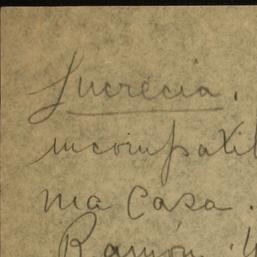 Lucrecia.
incompatib
ma casa.
Ramón.